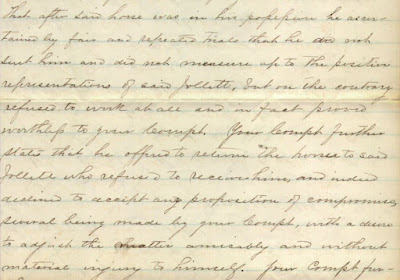 That after said horse was in his possession he ascer-
tained by fair and repeated trials that he did not
suit him and did not measure up to the positive
representations of said Jollett, but on the contrary
refused to work at all and in fact proved
worthless to your Compt. Your Compt further
states that he offered to return the horse to said
Jollett who refused to receive him, and indeed
declined to accept any proposition of compromise,
several being made by your Compt, with a desire
to adjust the matter amicably and without
material injury to himself. Your Compt fur-